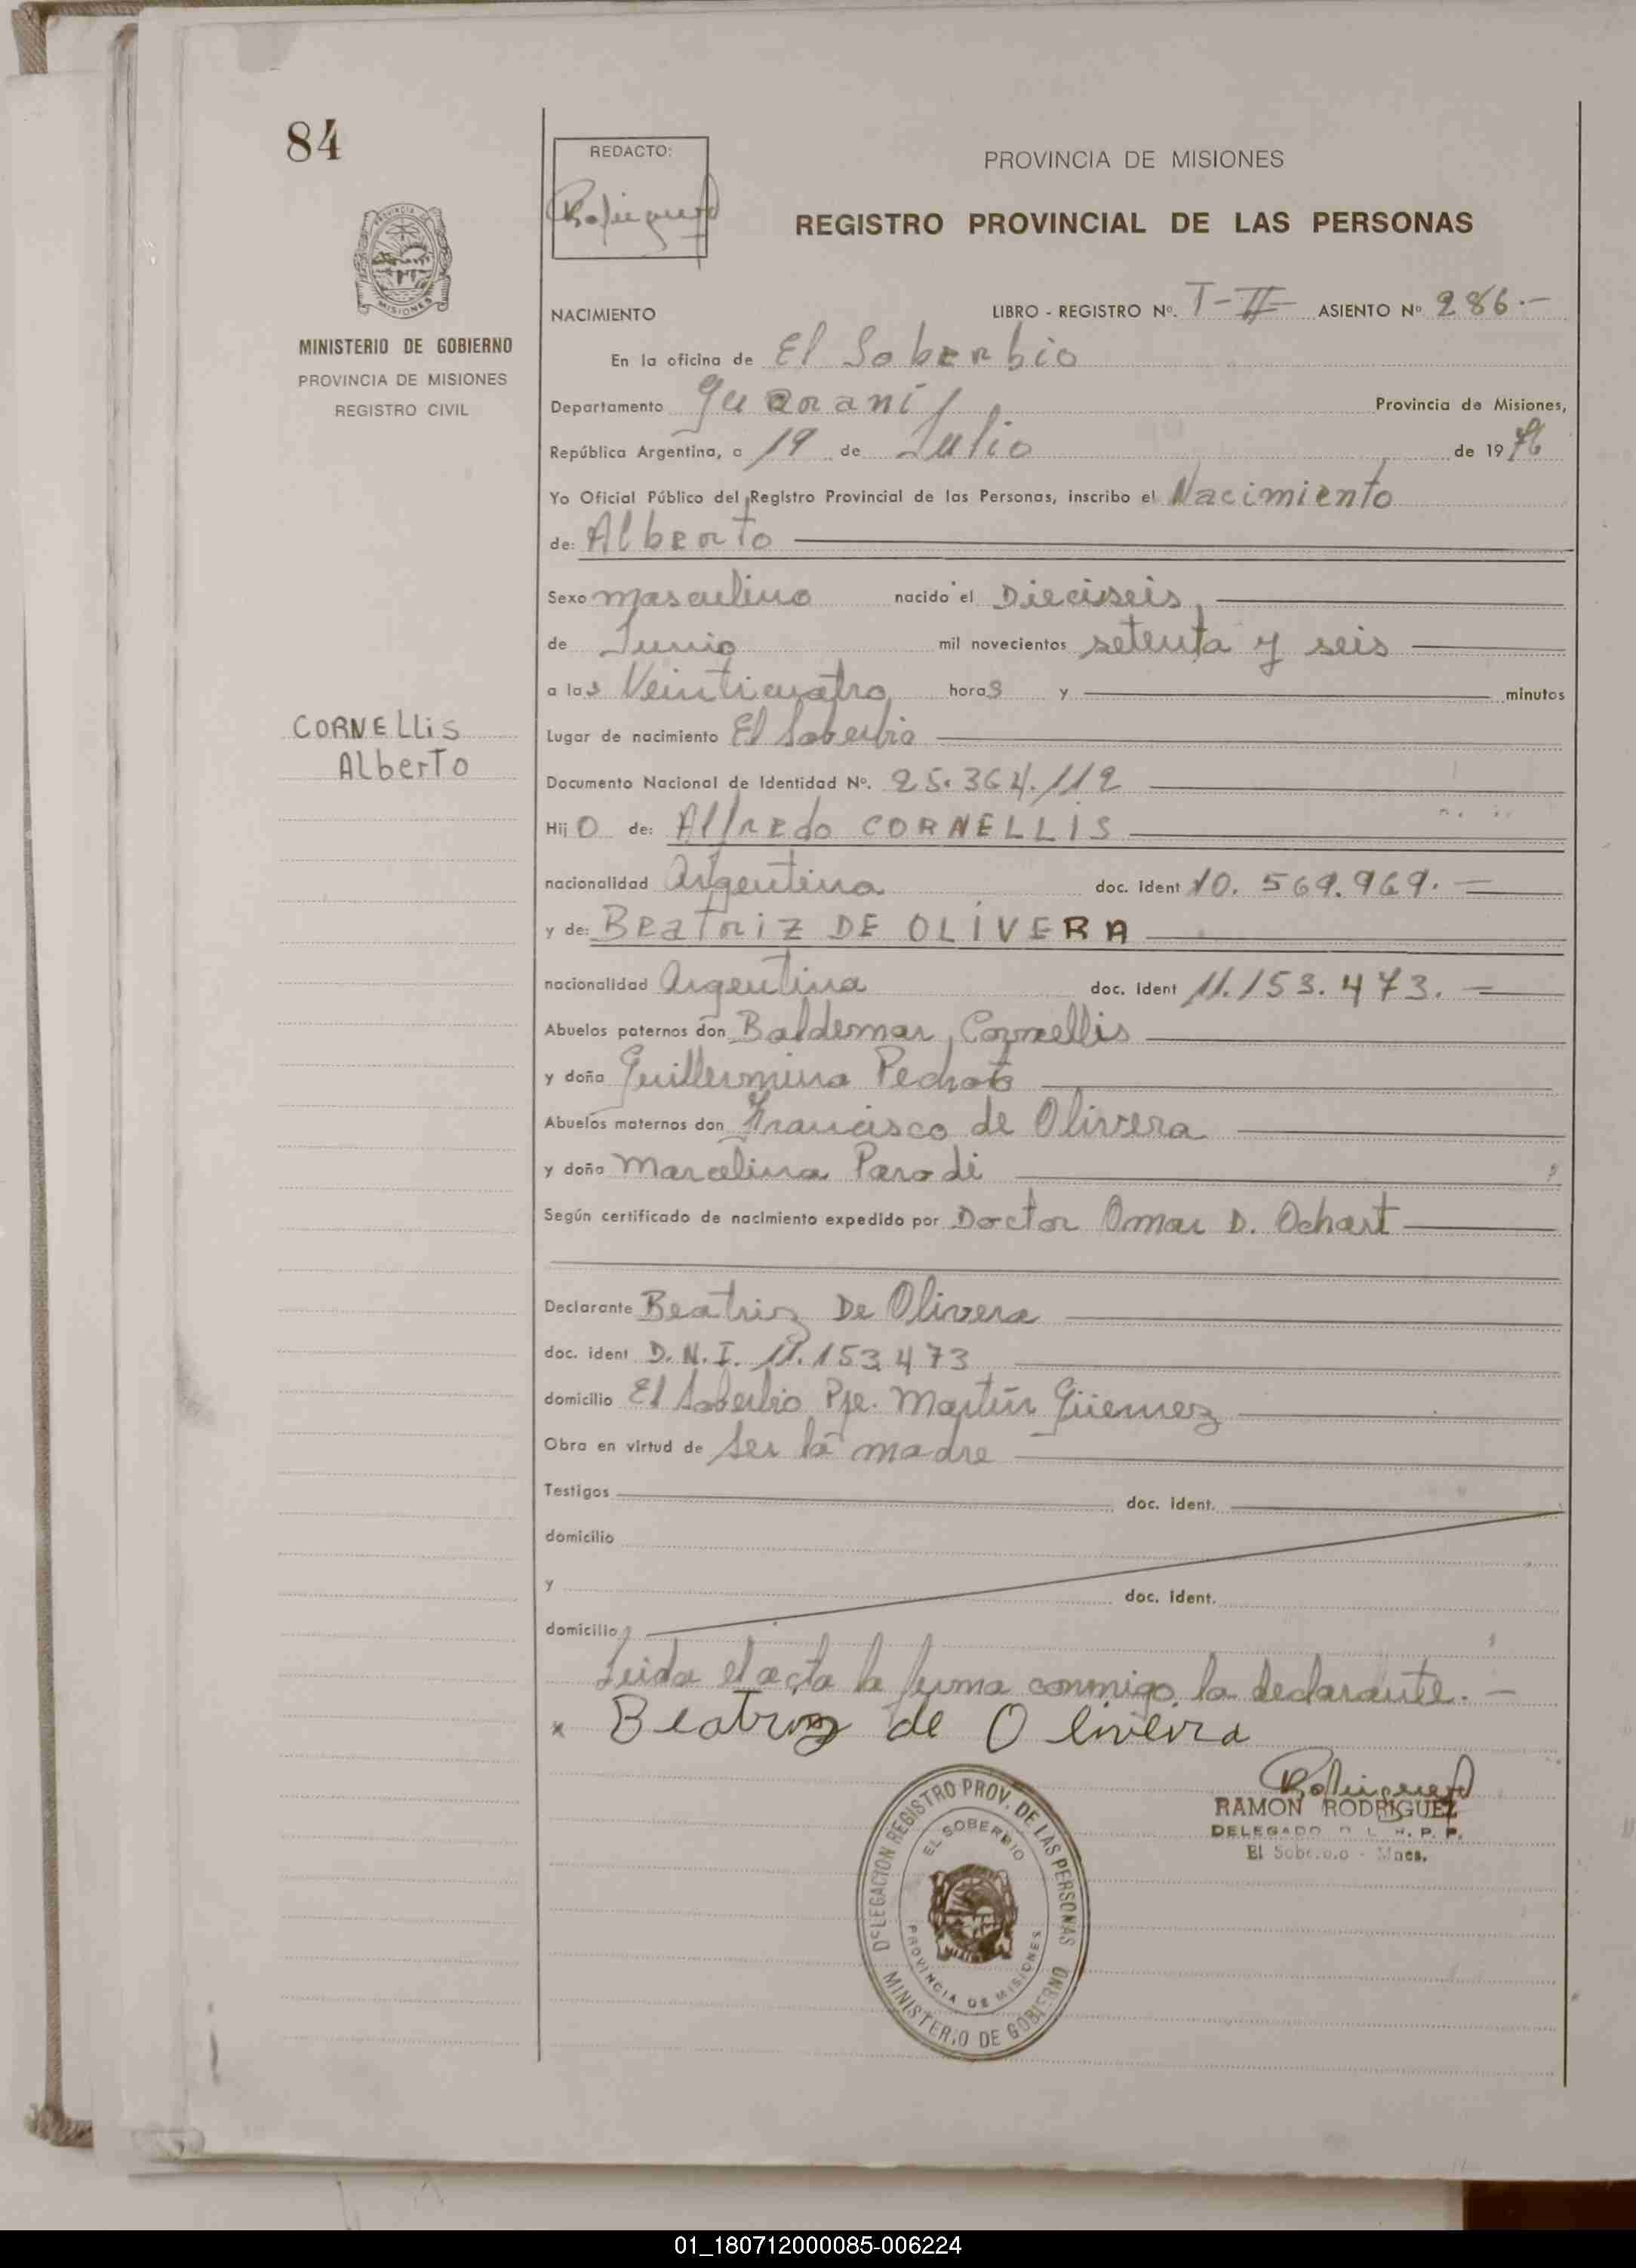 84
REDACTO:
PROVINCIA DE MISIONES
REGISTRO PROVINCIAL DE LAS PERSONAS
MINISTERIO DE GOBIERNO
PROVINCIA DE MISIONES
REGISTRO CIVIL
NACIMIENTO LIBRO - REGISTRO Nº. T-II ASIENTO Nº 286.-
En la oficina de El Soberbio
Departamento Guaraní Provincia de Misiones,
República Argentina, a 19 de Julio de 1976
Yo Oficial Público del Registro Provincial de las Personas, inscribo el Nacimiento
de: Alberto
Sexo masculino nacido el Dieciseis
de Junio mil novecientos setenta y seis
a las Veinticuatro horas y minutos
CORNELLiS
ALberTo
Lugar de nacimiento El Soberbio
Documento Nacional de Identidad Nº. 25.364.112
Hijo de: Alfredo CORNELLIS
nacionalidad Argentina doc. ident 10.569.969.-
y de: BEATRIZ DE OLIVERA
nacionalidad Argentina doc. ident 11.153.473.-
Abuelos paternos don Baldemar Cornellis
y doña Guillermina
Abuelos maternos don Francisco de Olivera
y doña Marcelina Parodi
Según certificado de nacimiento expedido por Doctor Omar D. Ochart
Declarante Beatriz De Olivera
doc. ident D.N.I. 11.153.473
domicilio El Soberbio Pje. Martín Güemez
Obra en virtud de Ser la madre
Testigos doc. ident.
domicilio
y doc. ident.
domicilio
Leida el acta la firma conmigo la declarante.-
x Beatriz de Oliveira
RAMON RODRIGUEZ
DELEGADO R. P. P.
El Soberbio - Mnes.
DELEGACION REGISTRO PROV. DE LAS PERSONAS
EL SOBERBIO
PROVINCIA DE MISIONES
MINISTERIO DE GOBIERNO
01_180712000085-006224